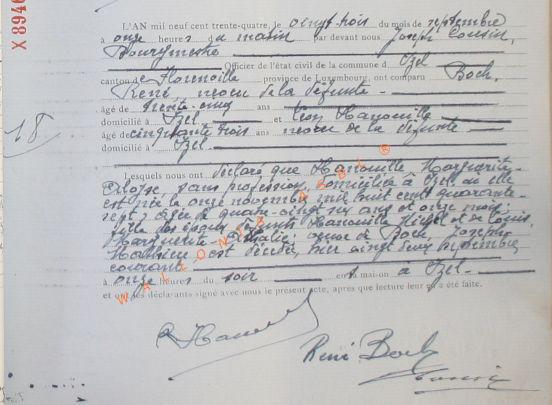 X 8940
L'AN mil neuf cent trente-quatre, le vingt trois du mois de septembre
à onze heures du matin par devant nous Joseph Cousin,
Bourgmestre
Officier de l'état civil de la commune d' Izel
canton de Florenville province de Luxembourg, ont comparu Boch,
René, neveu de la défunte
âgé de trente-cinq ans
domicilié à Izel et Léon Hanouille
âgé de cinquante trois ans neveu de la défunte
domicilié à Izel
18
Lesquels nous ont déclaré que Hanouille, Marguerite-
sans profession, domiciliée à Izel, où elle
est née le onze novembre mil huit cent quarante-
sept, âgée de quatre-vingt six ans et onze mois,
fille des époux défunts Hanouille Michel et de Louis
Marguerite- veuve de Boch, Joseph-
est décédée, hier vingt deux septembre,
courant
à onze heures du soir en sa maison à Izel.
et ont les déclarants signé avec nous le présent acte, après que lecture leur en a été faite.
René Boch